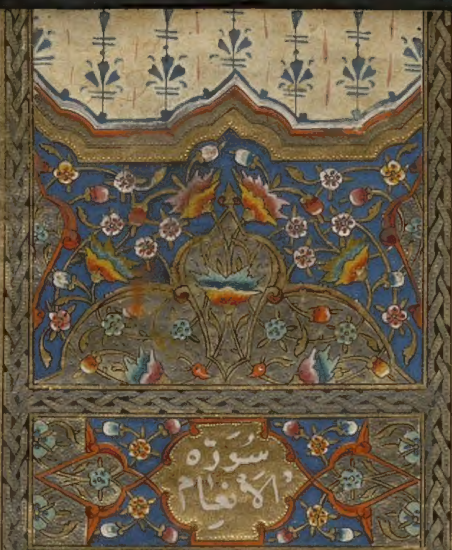 سُورَة
الْأَنْعَام